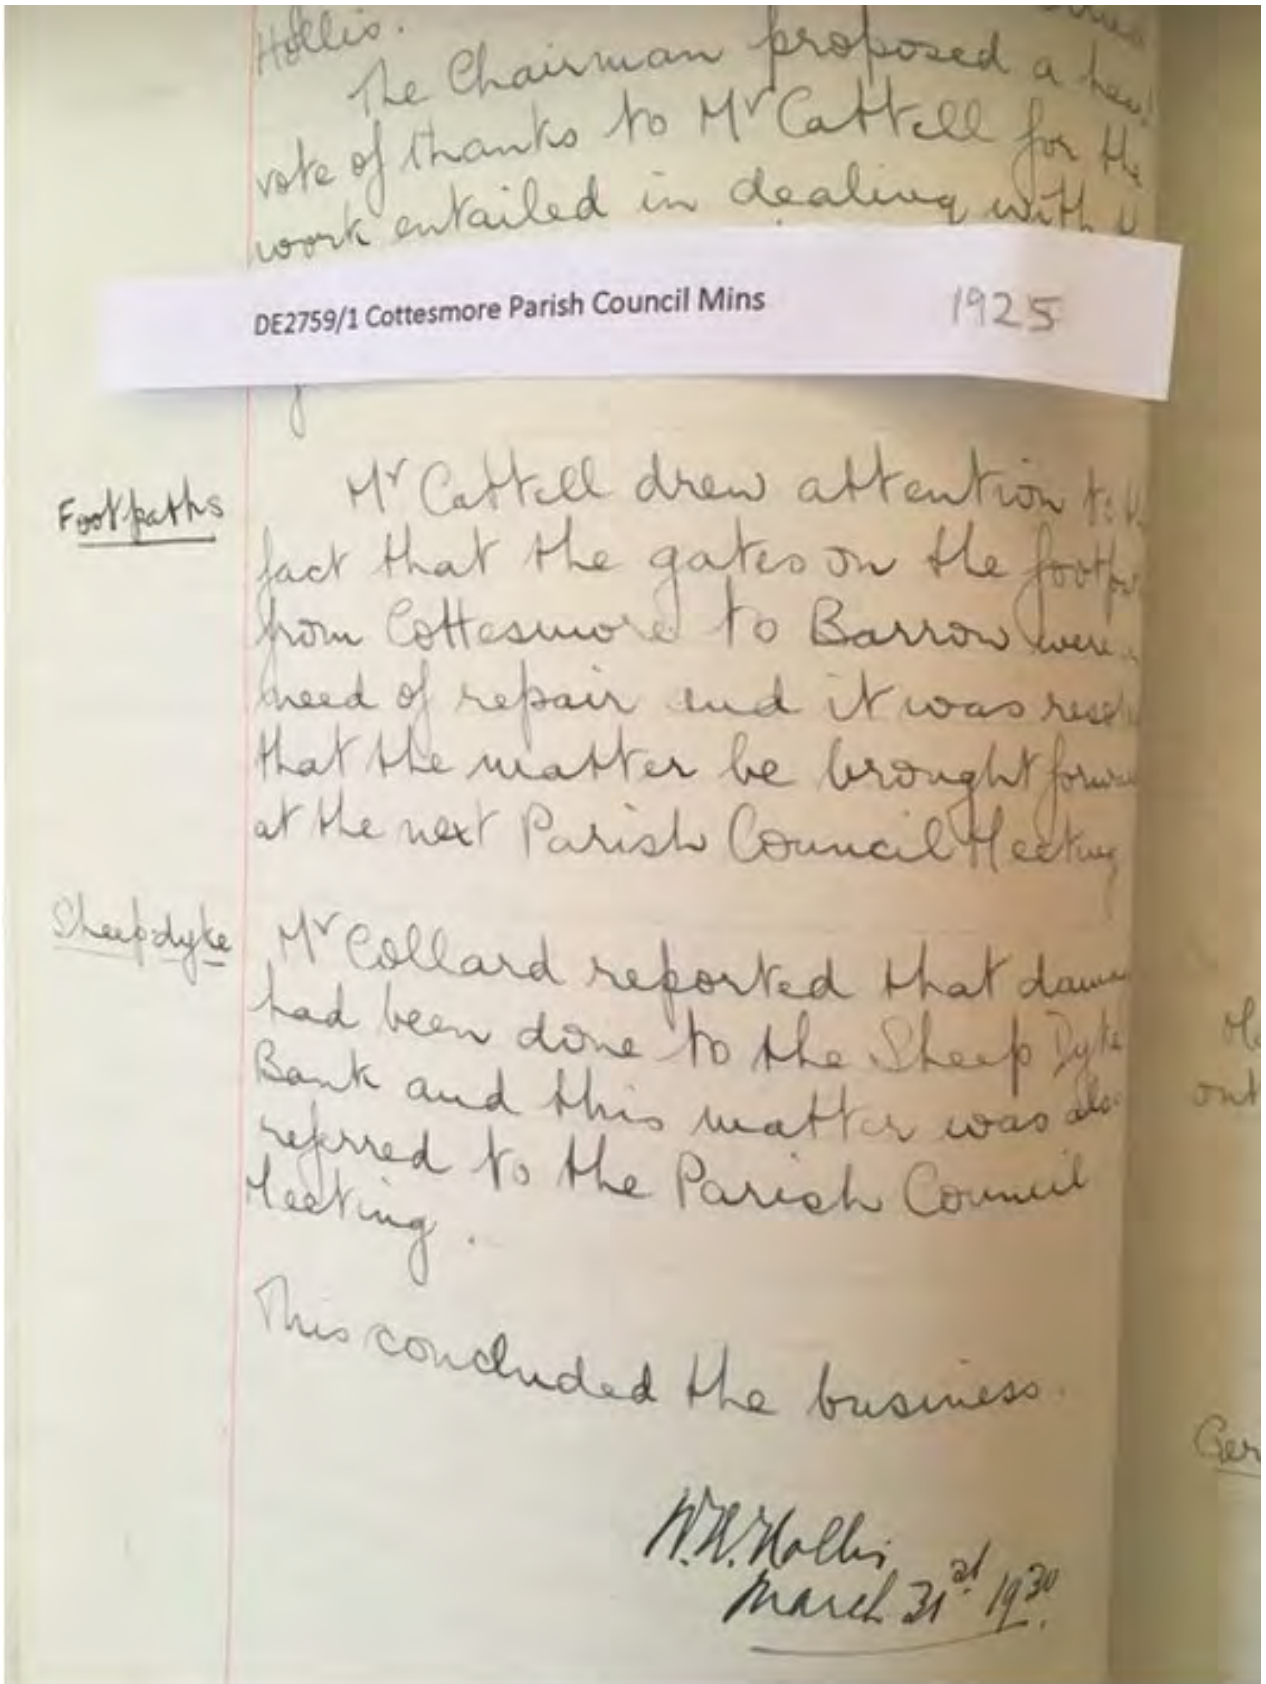 Hollis.
The Chairman proposed a
vote of thanks to Mr Cattell for the
work entailed in dealing with
DE2759/1 Cottesmore Parish Council Mins 1925
Footpaths
Mr Cattell drew attention to
fact that the gates on the
from Cottesmore to Barrow were
need of repair and it was
that the matter be brought
at the next Parish Council Meeting
Sheepdyke
Mr Collard reported that
had been done to the Sheep Dyke
Bank and this matter was also
referred to the Parish Council
Meeting.
This concluded the business.
W.H. Hollis
March 31st 1930.